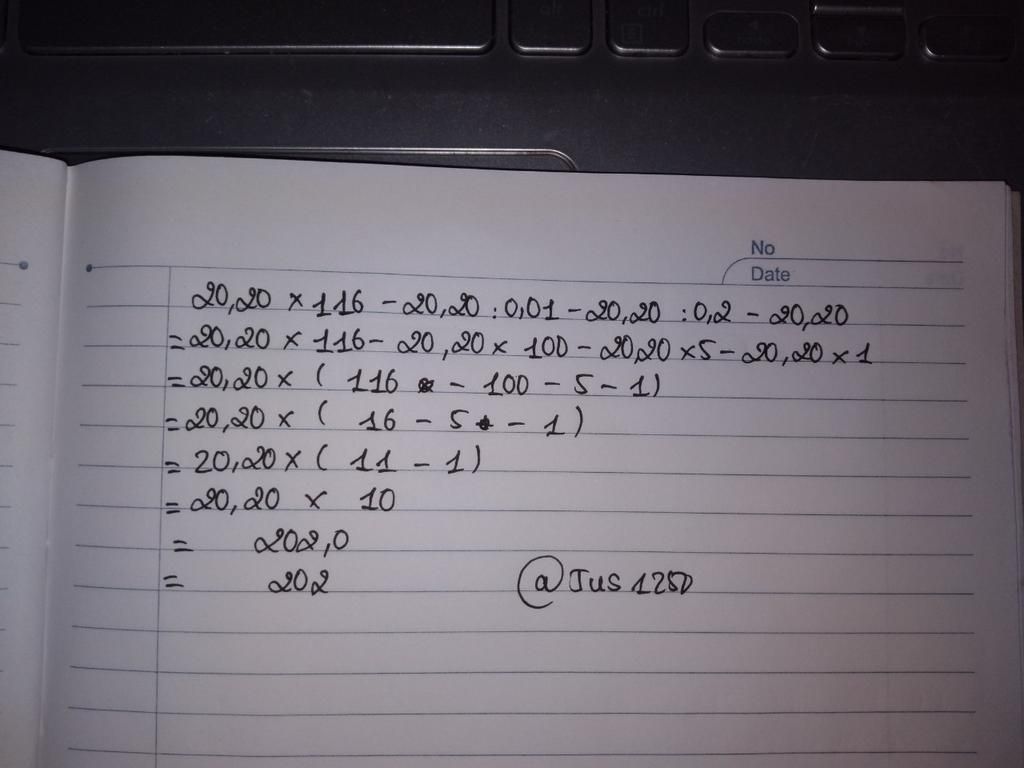 No
Date
20,20 × 116 - 20,20 : 0,01 - 20,20 : 0,2 - 20,20
= 20,20 × 116 - 20,20 × 100 - 20,20 × 5 - 20,20 × 1
= 20,20 × ( 116 - 100 - 5 - 1 )
= 20,20 × ( 16 - 5 - 1 )
= 20,20 × ( 11 - 1 )
= 20,20 × 10
= 202,0
= 202 @Jus1250